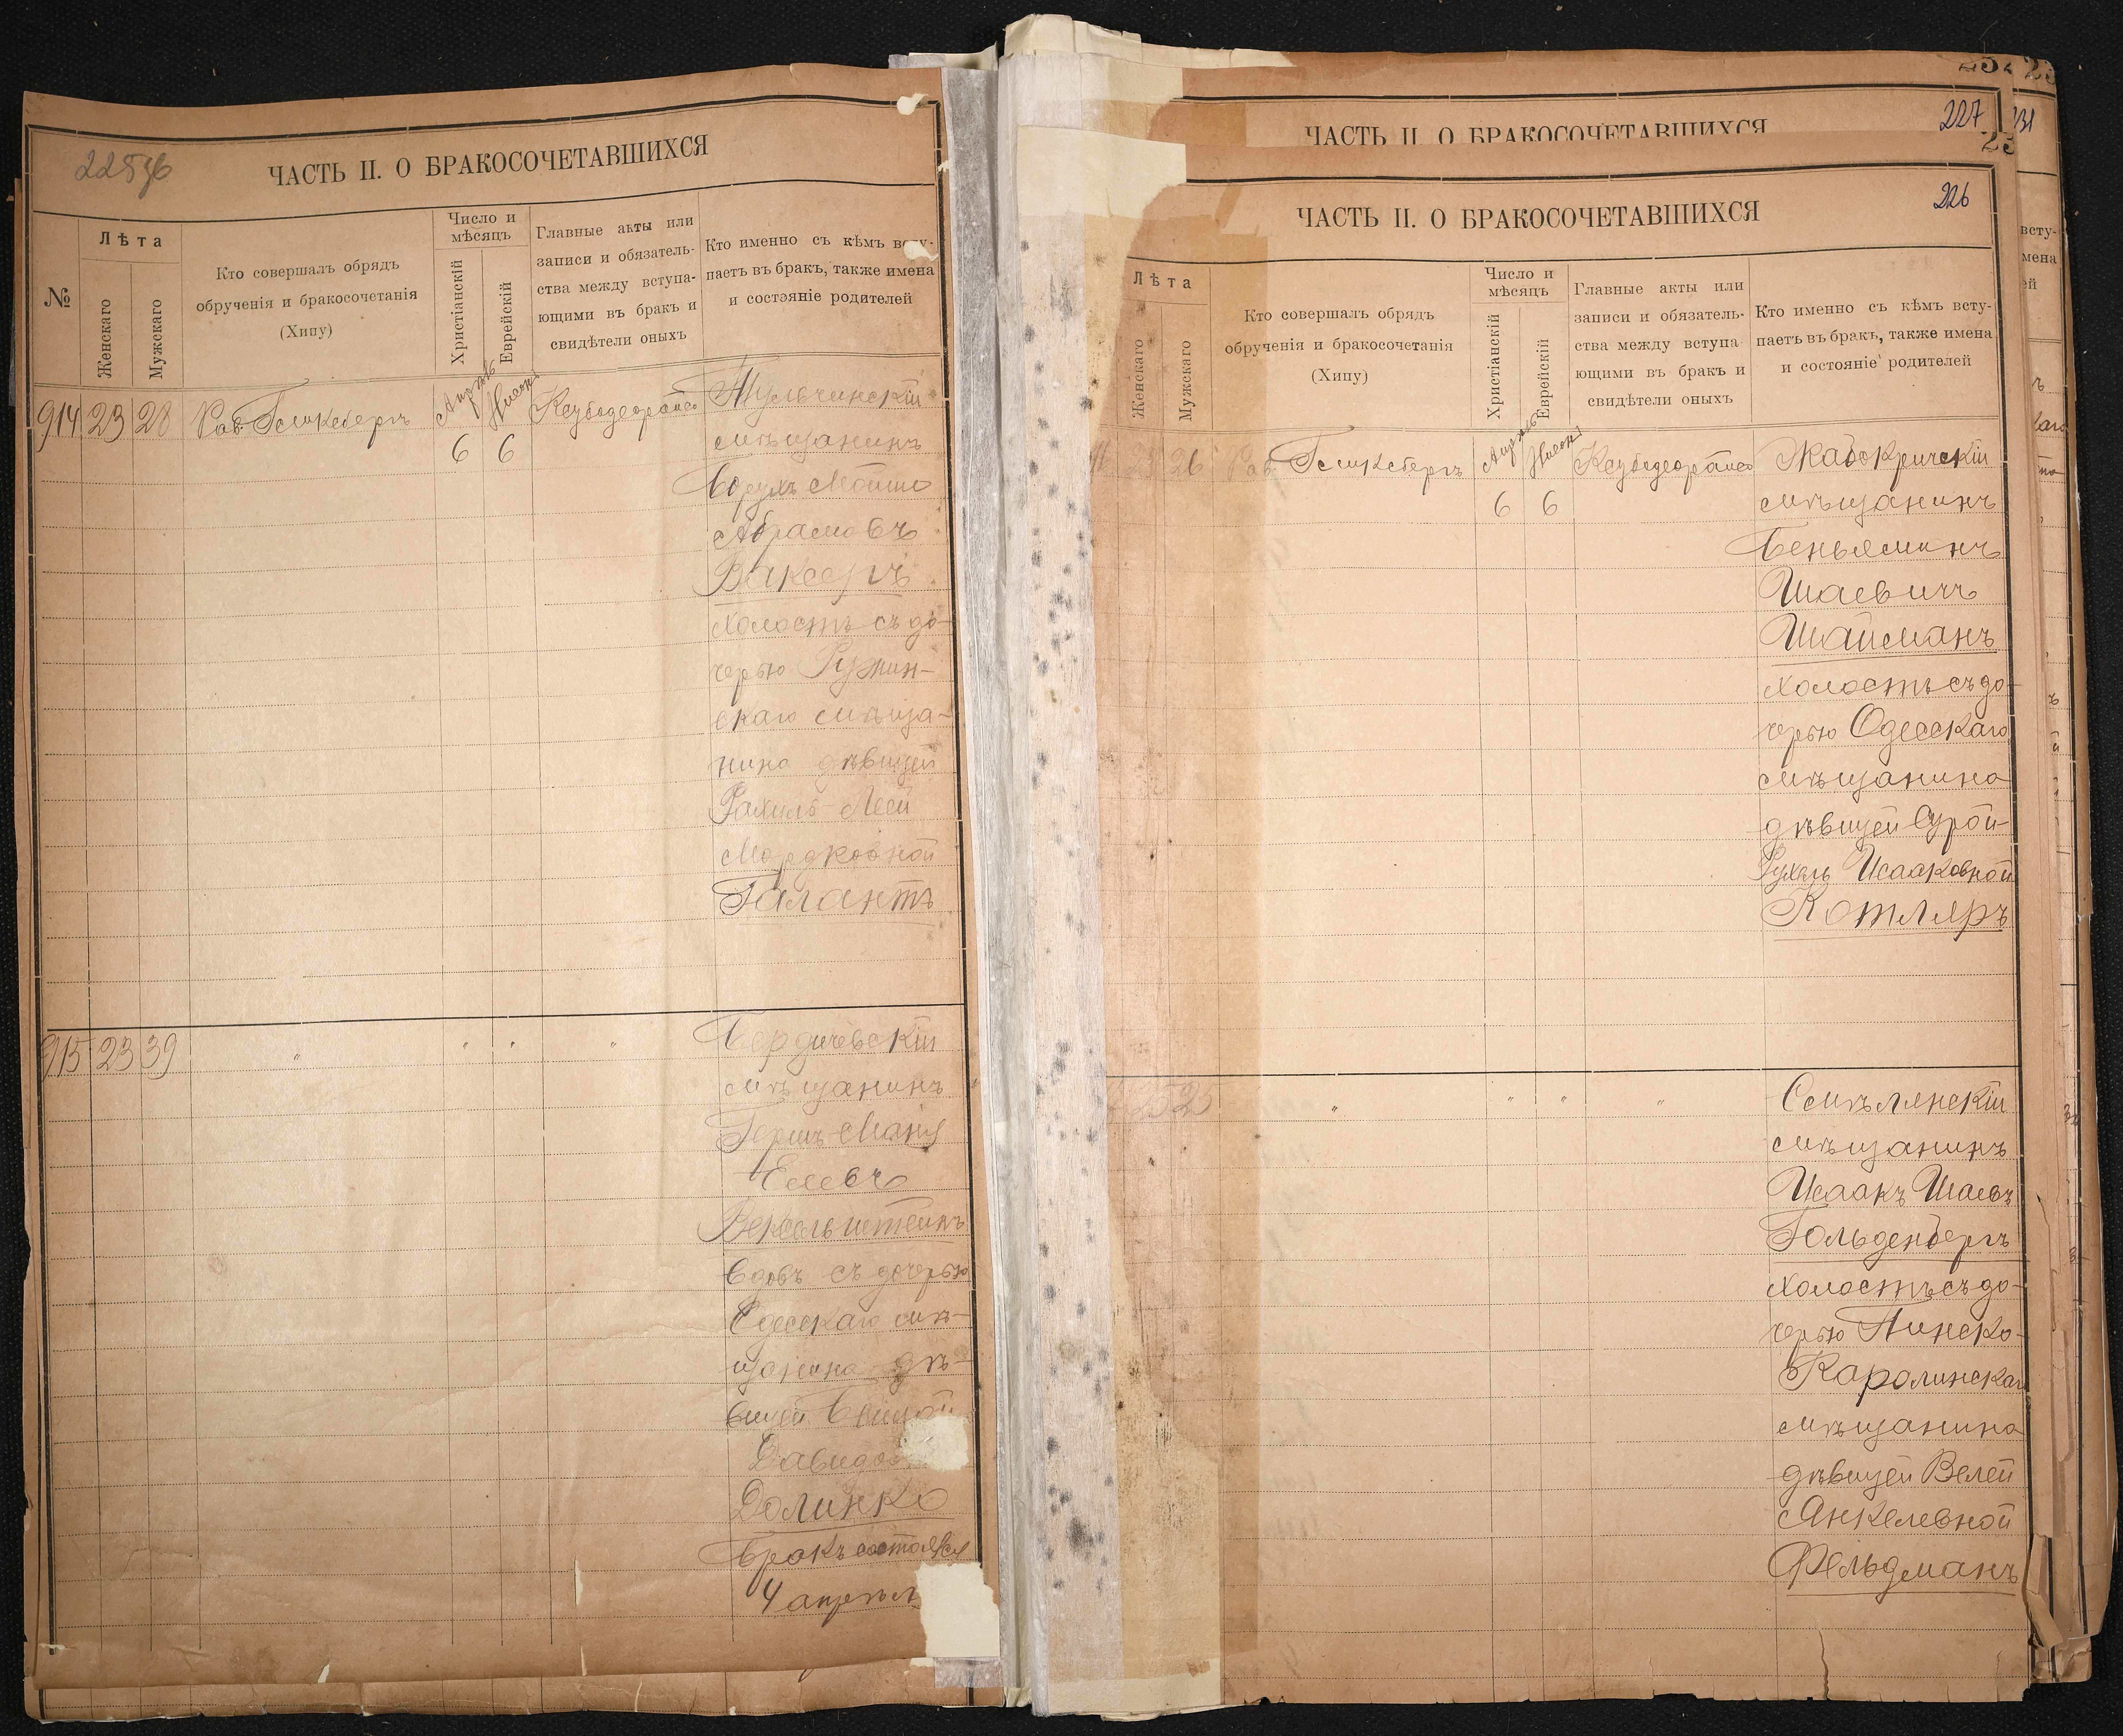 ЧАСТЬ II. О БРАКОСОЧЕТАВШИХСЯ
№
Лѣта
Женскаго
Мужскаго
Кто совершалъ обрядъ
обрученія и бракосочетанія
(Хипу)
Число и
мѣсяцъ
Христіанскій
Еврейскій
Главные акты или
записи и обязатель-
ства между вступа-
ющими въ бракъ и
свидѣтели оныхъ
Кто именно съ кѣмъ всту-
паетъ въ бракъ, также имена
и состояніе родителей
914 23 28 Рав. Гамксбергъ
Апрѣль
6 6
Тульчинскій
мѣщанинъ
Борухъ Мошко
Абрамовъ
Ваксеръ
холостъ съ до-
черью Ружин-
скаго мѣща-
нина дѣвицей
Рахиль-Леей
Мордковной
Галантъ
915 23 39 " " " "
Бердичевскій
мѣщанинъ
Гершъ
Вексельштейнъ
вдовъ съ дочерью
Одесскаго мѣ-
щанина дѣ-
вицей
Долинко
Бракъ состоялся
4 апрѣл
227
ЧАСТЬ II. О БРАКОСОЧЕТАВШИХСЯ
226
ЧАСТЬ II. О БРАКОСОЧЕТАВШИХСЯ
Лѣта
Женскаго
Мужскаго
Кто совершалъ обрядъ
обрученія и бракосочетанія
(Хипу)
Число и
мѣсяцъ
Христіанскій
Еврейскій
Главные акты или
записи и обязатель-
ства между вступа
ющими въ бракъ и
свидѣтели оныхъ
Кто именно съ кѣмъ всту-
паетъ въ бракъ, также имена
и состояніе родителей
26 Рав. Гамксбергъ
Апрѣль
6 6
Жабокричскій
мѣщанинъ
Беньяминъ
Шаевичъ
Шайсманъ
холостъ съ до-
черью Одесскаго
мѣщанина
дѣвицей Сурой-
Рухель Исааковной
Котляръ
25 25 " " " "
Смѣлянскій
мѣщанинъ
Исаакъ Шаевъ
Гольденбергъ
холостъ съ до-
черью Пинско-
Каролинскаго
мѣщанина
дѣвицей Велей
Янкелевной
Фельдманъ